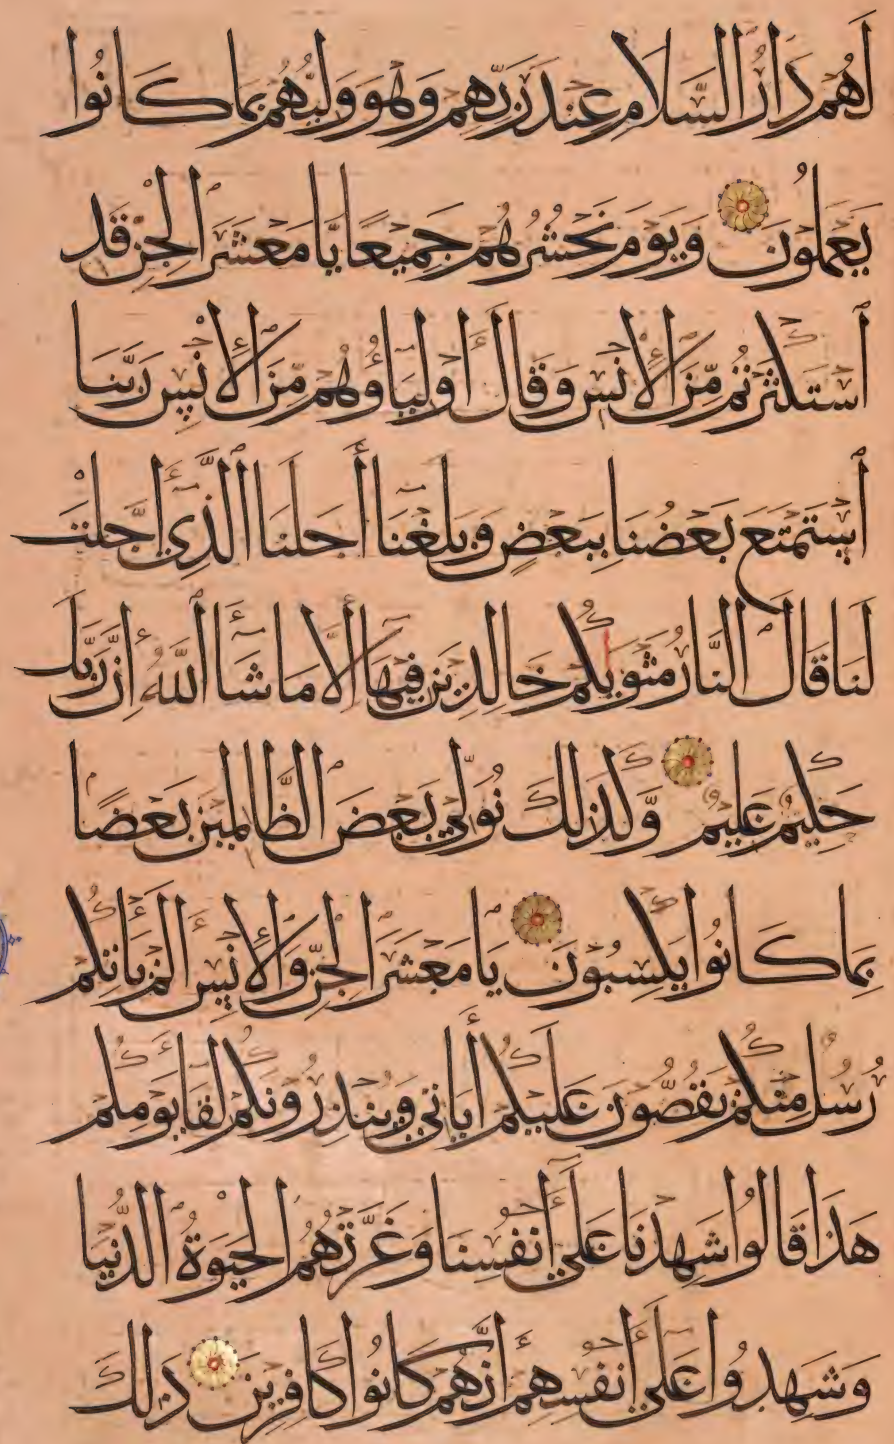 لَهُمْ دَارُ السَّلَامِ عِنْدَ رَبِّهِمْ وَهُوَ وَلِيُّهُمْ بِمَا كَانُوا
يَعْمَلُونَ وَيَوْمَ نَحْشُرُهُمْ جَمِيعًا يَا مَعْشَرَ الْجِنِّ قَدِ
ٱسْتَكْثَرْتُمْ مِّنَ الْإِنْسِ وَقَالَ أَوْلِيَاؤُهُمْ مِّنَ الْإِنْسِ رَبَّنَا
ٱسْتَمْتَعَ بَعْضُنَا بِبَعْضٍ وَبَلَغْنَا أَجَلَنَا ٱلَّذِي أَجَّلْتَ
لَنَا قَالَ النَّارُ مَثْوَيكُمْ خَالِدِينَ فِيهَا إِلَّا مَا شَاءَ ٱللَّهُ إِنَّ رَبَّكَ
حَكِيمٌ عَلِيمٌ وَّكَذَلِكَ نُوَلِّي بَعْضَ الظَّالِمِينَ بَعْضًا
بِمَا كَانُوا يَكْسِبُونَ يَا مَعْشَرَ الْجِنِّ وَالْإِنْسِ أَلَمْ يَأْتِكُمْ
رُسُلٌ مِنْكُمْ يَقُصُّونَ عَلَيْكُمْ أَيَاتِي وَيُنْذِرُونَكُمْ لِقَا يَوْمِكُمْ
هَذَا قَالُوا شَهِدْنَا عَلَى أَنْفُسِنَا وَغَرَّتْهُمُ الْحَيَوةُ الدُّنْيَا
وَشَهِدُوا عَلَى أَنْفُسِهِمْ أَنَّهُمْ كَانُوا كَافِرِينَ ذَلِكَ